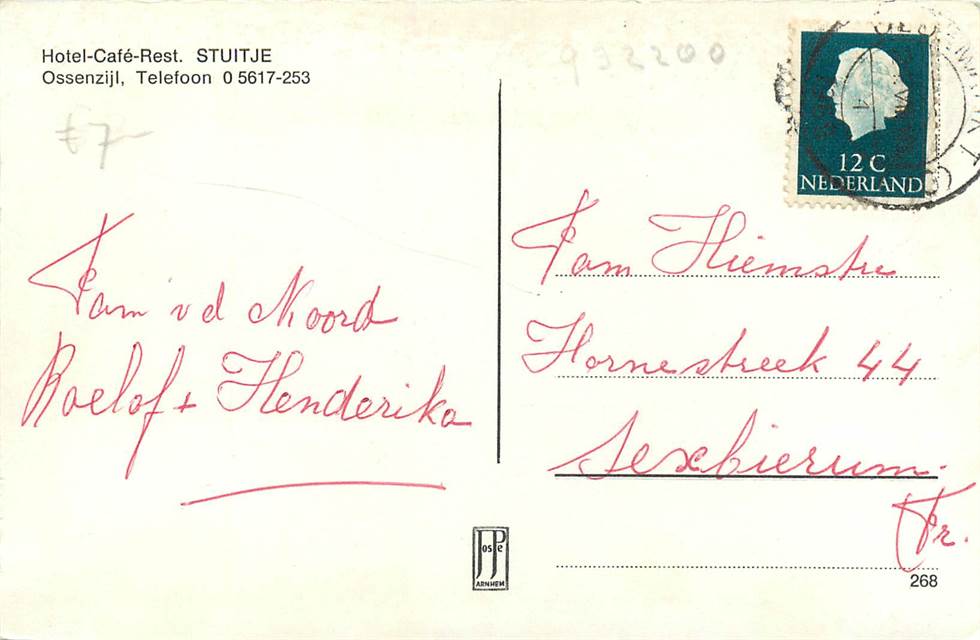 Hotel-Café-Rest. STUITJE
Ossenzijl, Telefoon 0 5617-253
€7-
Fam v d Noord
Roelof + Henderika
932200
12 C
NEDERLAND
Fam Hiemstra
Hornestreek 44
Sexbierum.
Fr.
JosPe
ARNHEM
268